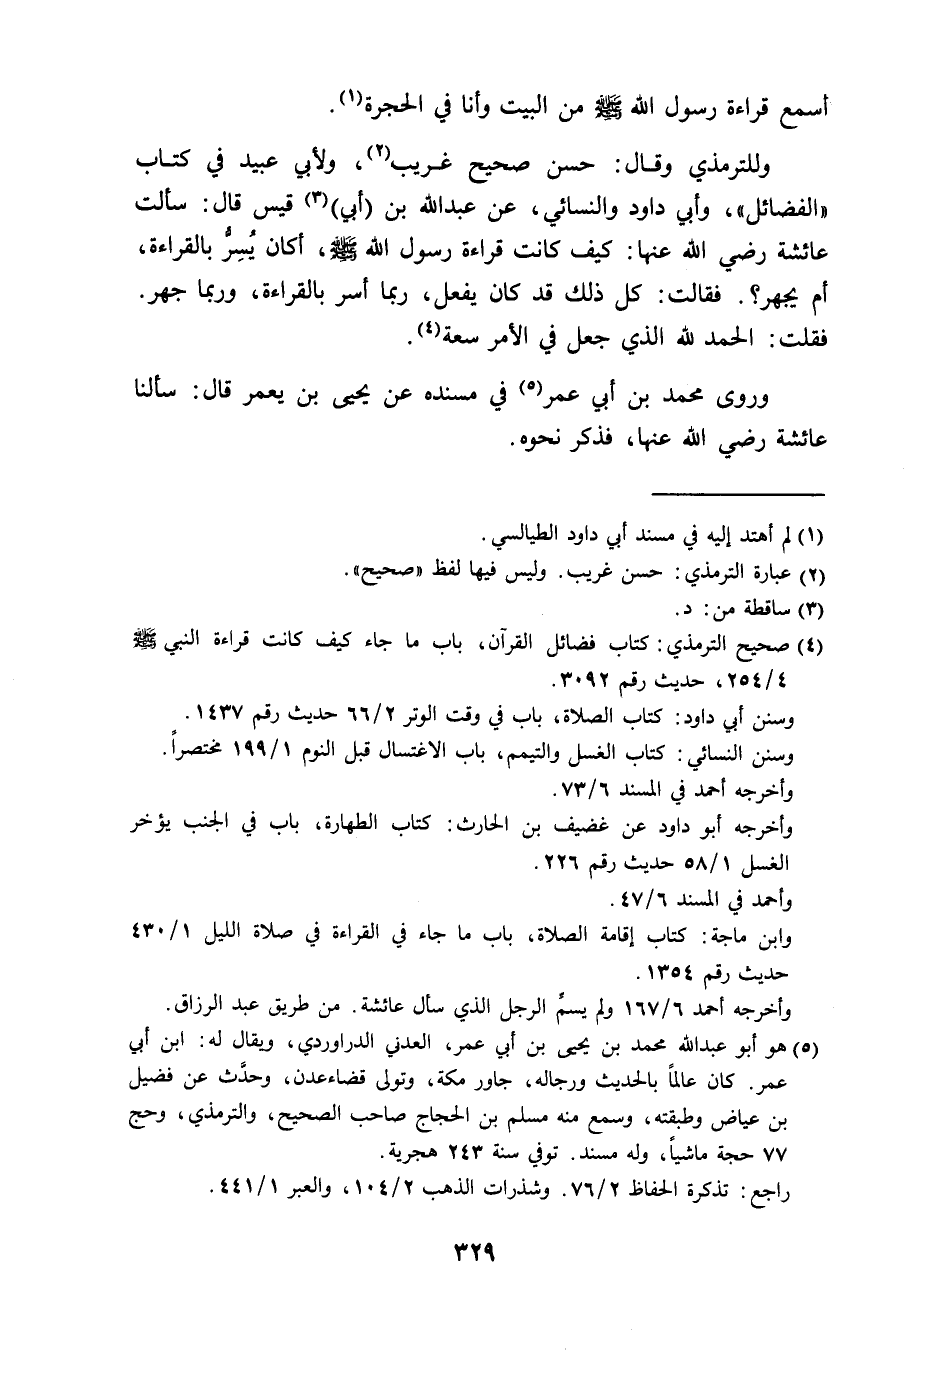 أسمع قراءة رسول الله ﷺ من البيت وأنا في الحجرة(١).
وللترمذي وقال: حسن صحيح غريب(٢)، ولأبي عبيد في كتاب
«الفضائل»، وأبي داود والنسائي، عن عبدالله بن (أبي)(٣) قيس قال: سألت
عائشة رضي الله عنها: كيف كانت قراءة رسول الله ﷺ، أكان يُسِرُّ بالقراءة،
أم يجهر؟. فقالت: كل ذلك قد كان يفعل، ربما أسر بالقراءة، وربما جهر.
فقلت: الحمد لله الذي جعل في الأمر سعة(٤).
وروى محمد بن أبي عمر(٥) في مسنده عن يحيى بن يعمر قال: سألنا
عائشة رضي الله عنها، فذكر نحوه.
(١) لم أهتد إليه في مسند أبي داود الطيالسي.
(٢) عبارة الترمذي: حسن غريب. وليس فيها لفظ «صحيح».
(٣) ساقطة من: د.
(٤) صحيح الترمذي: كتاب فضائل القرآن، باب ما جاء كيف كانت قراءة النبي ﷺ
٢٥٤/٤، حديث رقم ٣٠٩٢.
وسنن أبي داود: كتاب الصلاة، باب في وقت الوتر ٦٦/٢ حديث رقم ١٤٣٧.
وسنن النسائي: كتاب الغسل والتيمم، باب الاغتسال قبل النوم ١٩٩/١ مختصراً.
وأخرجه أحمد في المسند ٧٣/٦.
وأخرجه أبو داود عن غضيف بن الحارث: كتاب الطهارة، باب في الجنب يؤخر
الغسل ٥٨/١ حديث رقم ٢٢٦.
وأحمد في المسند ٤٧/٦.
وابن ماجة: كتاب إقامة الصلاة، باب ما جاء في القراءة في صلاة الليل ٤٣٠/١
حديث رقم ١٣٥٤.
وأخرجه أحمد ١٦٧/٦ ولم يسمِّ الرجل الذي سأل عائشة. من طريق عبد الرزاق.
(٥) هو أبو عبدالله محمد بن يحيى بن أبي عمر، العدني الدراوردي، ويقال له: ابن أبي
عمر. كان عالماً بالحديث ورجاله، جاور مكة، وتولى قضاءعدن، وحدَّث عن فضيل
بن عياض وطبقته، وسمع منه مسلم بن الحجاج صاحب الصحيح، والترمذي، وحج
٧٧ حجة ماشياً، وله مسند. توفي سنة ٢٤٣ هجرية.
راجع: تذكرة الحفاظ ٧٦/٢. وشذرات الذهب ١٠٤/٢، والعبر ٤٤١/١.
٣٢٩